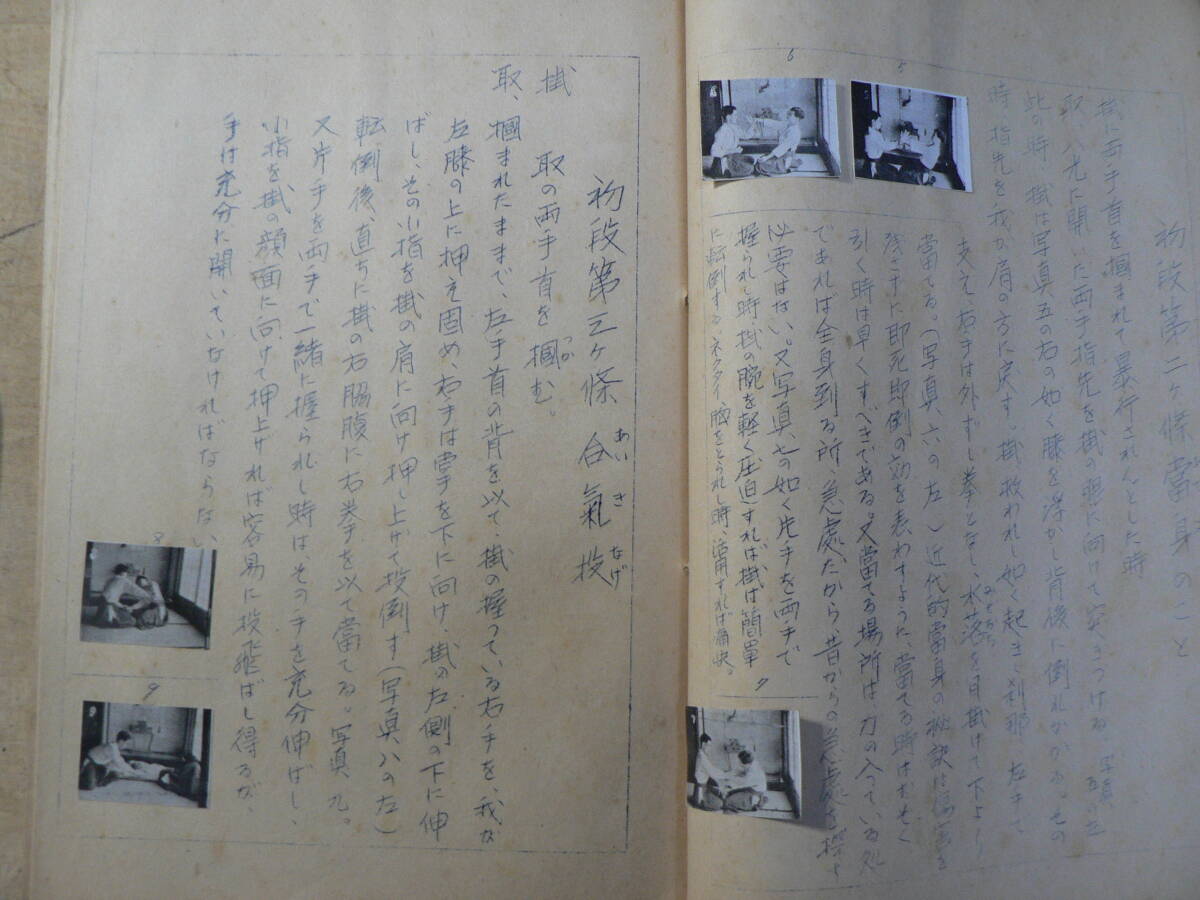 初段第二ヶ條 當身のこと
掛に両手首を掴まれて暴行されんとした時
取、八光に開いた両手指先を掛の眼に向けて突きつける
此の時、掛は写真五の右の如く膝を浮かし背後に倒れかかる。その
時、指先を我が肩の方に戻す。掛、救われし如く起きし刹那、左手で
支え、右手は外ずし拳となし、水落を目掛けて下より
みぞおち
當てる。(写真六の左)近代的當身の秘訣は傷害を
残さずに即死即倒の効を表わすように、當てる時はおそく
引く時は早くすべきである。又當てる場所は力の入っている処
であれば全身到る所、急處だから昔からの急處を探す
必要はない。又写真七の如く片手を両手で
握られし時掛の腕を軽く圧迫すれば掛は簡單
に転倒する、ネクタイ、胸をとられし時、活用すれば痛快。
5
6
7
初段第三ヶ條 合氣投
あい き なげ
掛 取の両手首を掴む。
つか
取、掴まれたままで、左手首の背を以て、掛の握っている右手を、我が
左膝の上に押え固め、右手は掌を下に向け、掛の左側の下に伸
ばし、その小指を掛の肩に向け押し上げて投倒す(写真八の左)
転倒後、直ちに掛の右脇腹に右拳を以て當てる。写真九。
又片手を両手で一緒に握られし時は、その手を充分伸ばし、
小指を掛の顔面に向けて押上げれば容易に投飛ばし得るが、
手は充分に開いていなければならない
8
9